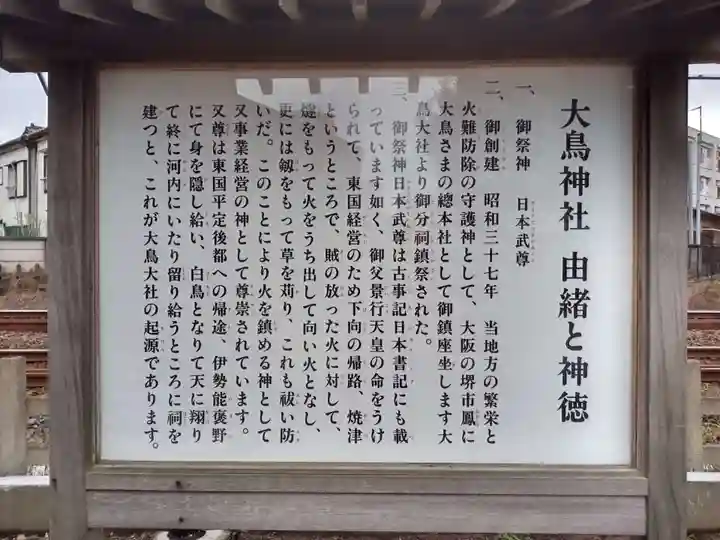 大鳥神社 由緒と神徳
一、御祭神 日本武尊
二、御創建 昭和三十七年 当地方の繁栄と
火難防除の守護神として、大阪の堺市鳳に
大鳥さまの總本社として御鎮座坐します大
鳥大社より御分祠鎮祭された。
三、御祭神日本武尊は古事記日本書記にも載
っています如く、御父景行天皇の命をうけ
られて、東国経営のため下向の帰路、焼津
というところで、賊の放った火に対して、
燧をもって火をうち出して向い火となし、
更には剱をもって草を苅り、これも祓い防
いだ。このことにより火を鎮める神として
又事業経営の神として尊崇されています。
又尊は東国平定後都への帰途、伊勢能褒野
にて身を隠し給い、白鳥となりて天に翔り
て終に河内にいたり留り給うところに祠を
建つと、これが大鳥大社の起源であります。